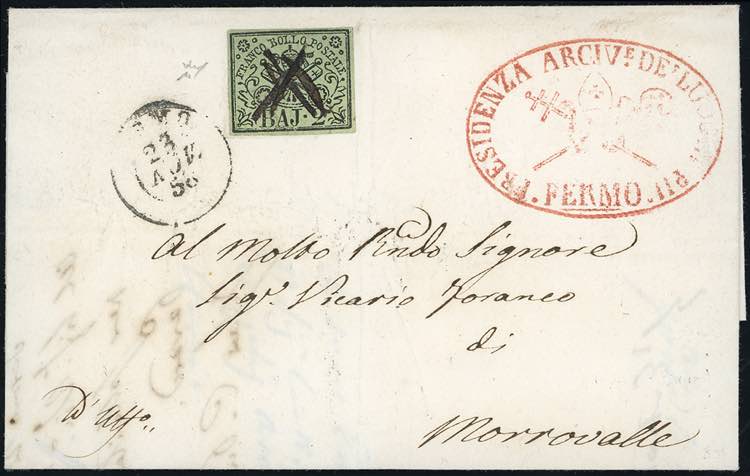 FRANCO BOLLO POSTALE
BAJ. 2
FERMO
23
NOV.
58
PRESIDENZA ARCIV.E DE' LUOGHI PII
FERMO
Al Molto Rndo Signore
Sigr. Vicario Foraneo
di
Morrovalle
D'Uffo.